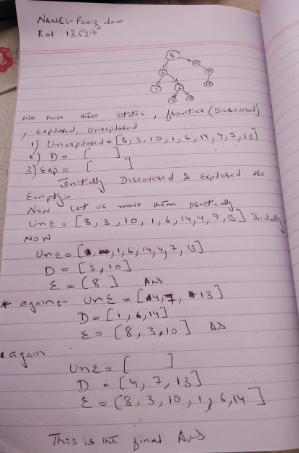 NAME:- Faaiz
Rol: 13527
We have three states, frontier (Discovered)
, Explored, Unexplored
1) Unexplored = [8, 3, 10, 1, 6, 14, 4, 7, 13]
2) D = [ ]
3) Exp = [ ]
Initially Discovered & Explored are
Empty-
Now let us move them practically
UnE = [8, 3, 10, 1, 6, 14, 4, 7, 13] Initially
NOW
UnE = [1, 6, 14, 4, 7, 13]
D = [3, 10]
E = [8] Ans
* again:- UnE = [4, 7, 13]
D = [1, 6, 14]
E = [8, 3, 10] Ans
* again
UnE = [ ]
D = [4, 7, 13]
E = [8, 3, 10, 1, 6, 14]
This is the final Ans